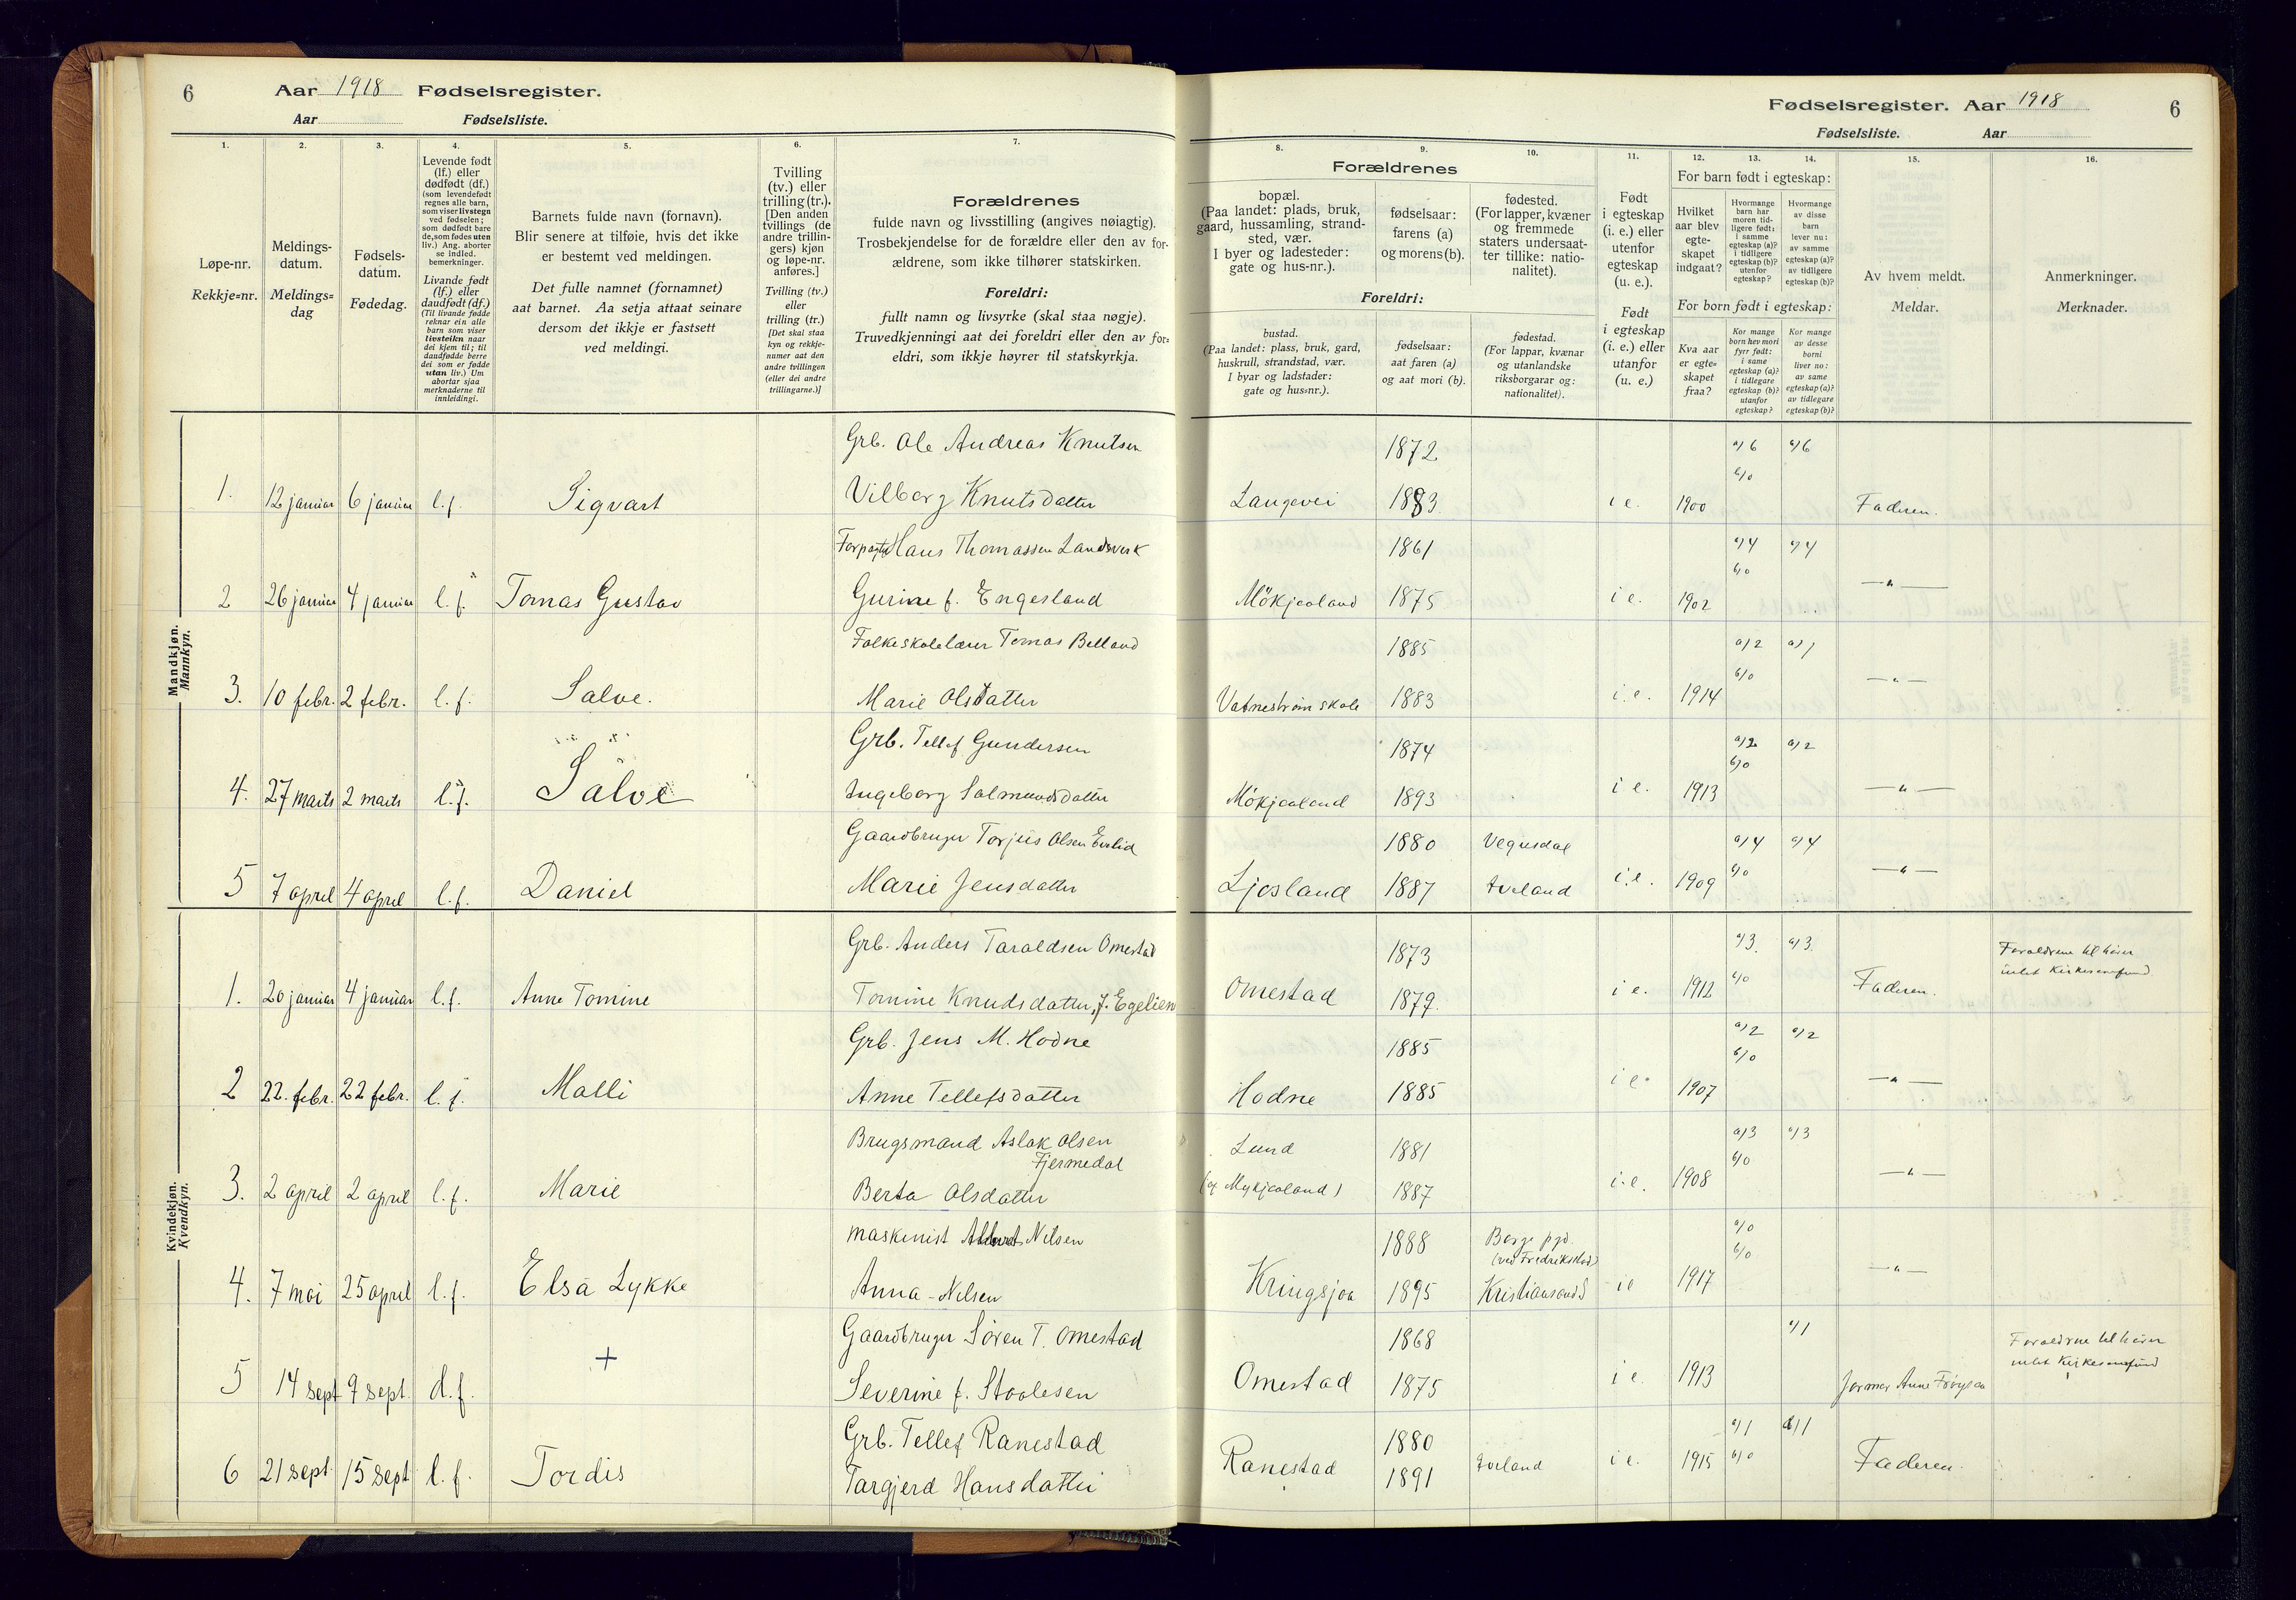 6
Aar 1918 Fødselsregister.
Aar Fødselsliste.
1.
2.
3.
4.
5.
6.
7.
Løpe-nr.
Rekkje=nr.
Meldings-
datum.
Meldings=
dag
Fødsels-
datum.
Fødedag.
Levende født
(lf.) eller
dødfødt (df.)
(som levendefødt
regnes alle barn,
som viser livstegn
ved fødselen;
som dødfødt bare
de, som fødes uten
liv.) Ang. aborter
se indled.
bemerkninger.
Livande født
(lf.) eller
daudfødt (df.)
(Til livande fødde
reknar ein alle
barn som viser
livsteikn naar
dei kjem til; til
daudfødde berre
dei som er fødde
utan liv.) Um
abortar sjaa
merknaderne til
innleidingi.
Barnets fulde navn (fornavn).
Blir senere at tilføie, hvis det ikke
er bestemt ved meldingen.
Det fulle namnet (fornamnet)
aat barnet. Aa setja attaat seinare
dersom det ikkje er fastsett
ved meldingi.
Tvilling
(tv.) eller
trilling (tr.).
[Den anden
tvillings (de
andre trillin-
gers) kjøn
og løpe-nr.
anføres.]
Tvilling (tv.)
eller
trilling (tr.)
[Det skal staa
kyn og rekkje-
numer aat den
andre tvillingen
(eller dei andre
trillingarne.)]
Forældrenes
fulde navn og livsstilling (angives nøiagtig).
Trosbekjendelse for de forældre eller den av for-
ældrene, som ikke tilhører statskirken.
Foreldri:
fullt namn og livsyrke (skal staa nøgje).
Truvedkjenningi aat dei foreldri eller den av for=
eldri, som ikkje høyrer til statskyrkja.
Mandkjøn.
Mannkyn.
Grb. Ole Andreas Knutsen
1. 12 januar 6 januar l.f. Sigvart Vilborg Knutsdatter
Forpagter Hans Thomassen Landsverk
2 26 januar 4 januar l.f. Tomas Gustav Gurine f. Engesland
Folkeskolelærer Tomas Belland
3. 10 febr. 2 febr. l.f. Salve. Marie Olsdatter
Grb. Tellef Gundersen
4. 27 marts 2 marts l.f. Salve Ingeborg Salmundsdatter
Gaardbruger Torjus Olsen Evlid
5 7 april 4 april l.f. Daniel Marie Jensdatter
Kvindekjøn.
Kvendkyn.
Grb. Anders Taraldsen Omestad
1. 20 januar 4 januar l.f. Anne Tomine Tomine Knudsdatter, f. Egelien
Grb. Jens M. Hodne
2 22. febr. 22 febr. l.f. Malli Anne Tellefsdatter
Brugsmand Aslak Olsen
Fjermedal
3. 2 april 2 april l.f. Marie Berta Olsdatter
maskinist Nilsen
4. 7 mai 25 april l.f. Elsa Lykke Anna Nilsen
Gaardbruger Søren T. Omestad
5 14 sept 9 sept. d.f. + Severine f. Staalesen
Grb. Tellef Ranestad
6 21 sept. 15 sept l.f. Tordis Targjerd Hansdatter
Fødselsregister. Aar 1918
6
Fødselsliste. Aar
8.
9.
10.
11.
12.
13.
14.
15.
16.
Forældrenes
bopæl.
(Paa landet: plads, bruk,
gaard, hussamling, strand-
sted, vær.
I byer og ladesteder:
gate og hus-nr.).
fødselsaar:
farens (a)
og morens (b).
fødested.
(For lapper, kvæner
og fremmede
staters undersaat-
ter tillike: natio-
nalitet).
Foreldri:
bustad.
(Paa landet: plass, bruk, gard,
huskrull, strandstad, vær.
I byar og ladstader:
gate og hus=nr.).
fødselsaar:
aat faren (a)
og aat mori (b).
fødestad.
(For lappar, kvænar
og utanlandske
riksborgarar og:
nationalitet).
Født
i egteskap
(i. e.) eller
utenfor
egteskap
(u. e.).
Født
i egteskap
(i. e.) eller
utanfor
egteskap
(u. e.)
For barn født i egteskap:
Hvilket
aar blev
egte-
skapet
indgaat?
Hvormange
barn har
moren tid-
ligere født:
i samme
egteskap (a)?
i tidligere
egteskap (b)?
utenfor
egteskap?
Hvormange
av disse
barn
lever nu:
av samme
egteskap (a)?
av tidligere
egteskap (b)?
For born født i egteskap:
Kva aar
er egte=
skapet
fraa?
Kor mange
born hev mori
fyrr født:
i same
egteskap (a)?
i tidlegare
egteskap (b)?
utanfor
egteskap?
Kor mange
av desse
borni
liver no:
av same
egteskap (a)?
av tidlegare
egteskap (b)?
Av hvem meldt.
Meldar.
Anmerkninger.
Merknader.
1872 a/6 a/6
b/0
Langevei 1883 i e. 1900 Faderen.
1861 a/4 a/4
b/0
Mökjaaland 1875 i e. 1902 —"—
1885 a/2 a/1
b/0
Vatnestrøm skole 1883 i e. 1914 —"—
1874 a/2 a/2
b/0
Mökjaaland 1893 i e. 1913 —"—
1880 Vegusdal a/4 a/4
b/0
Ljosland 1887 Iveland i.e. 1909 —"—
1873 a/3. a/3. Forældrene tilhører
b/0 intet Kirkesamfund
Omestad 1879. i e. 1912 Faderen.
1885 a/2 a/2
b/0
Hodne 1885 i e. 1907 —"—
Lund 1881 a/3 a/3
b/0
(af Mykjaaland) 1887 i.e. 1908 —"—
1888 Borge pgd. a/0
(ved Fredrikstad) b/0
Kringsjaa 1895 Kristiansand S i e 1917 —"—
1868 a/1 Forældrene tilhører
intet Kirkesamfund
Omestad 1875 i e. 1913 Jormor Anne
1880 a/1 a/1
b/0
Ranestad 1891 Iveland i e. 1915 Faderen.